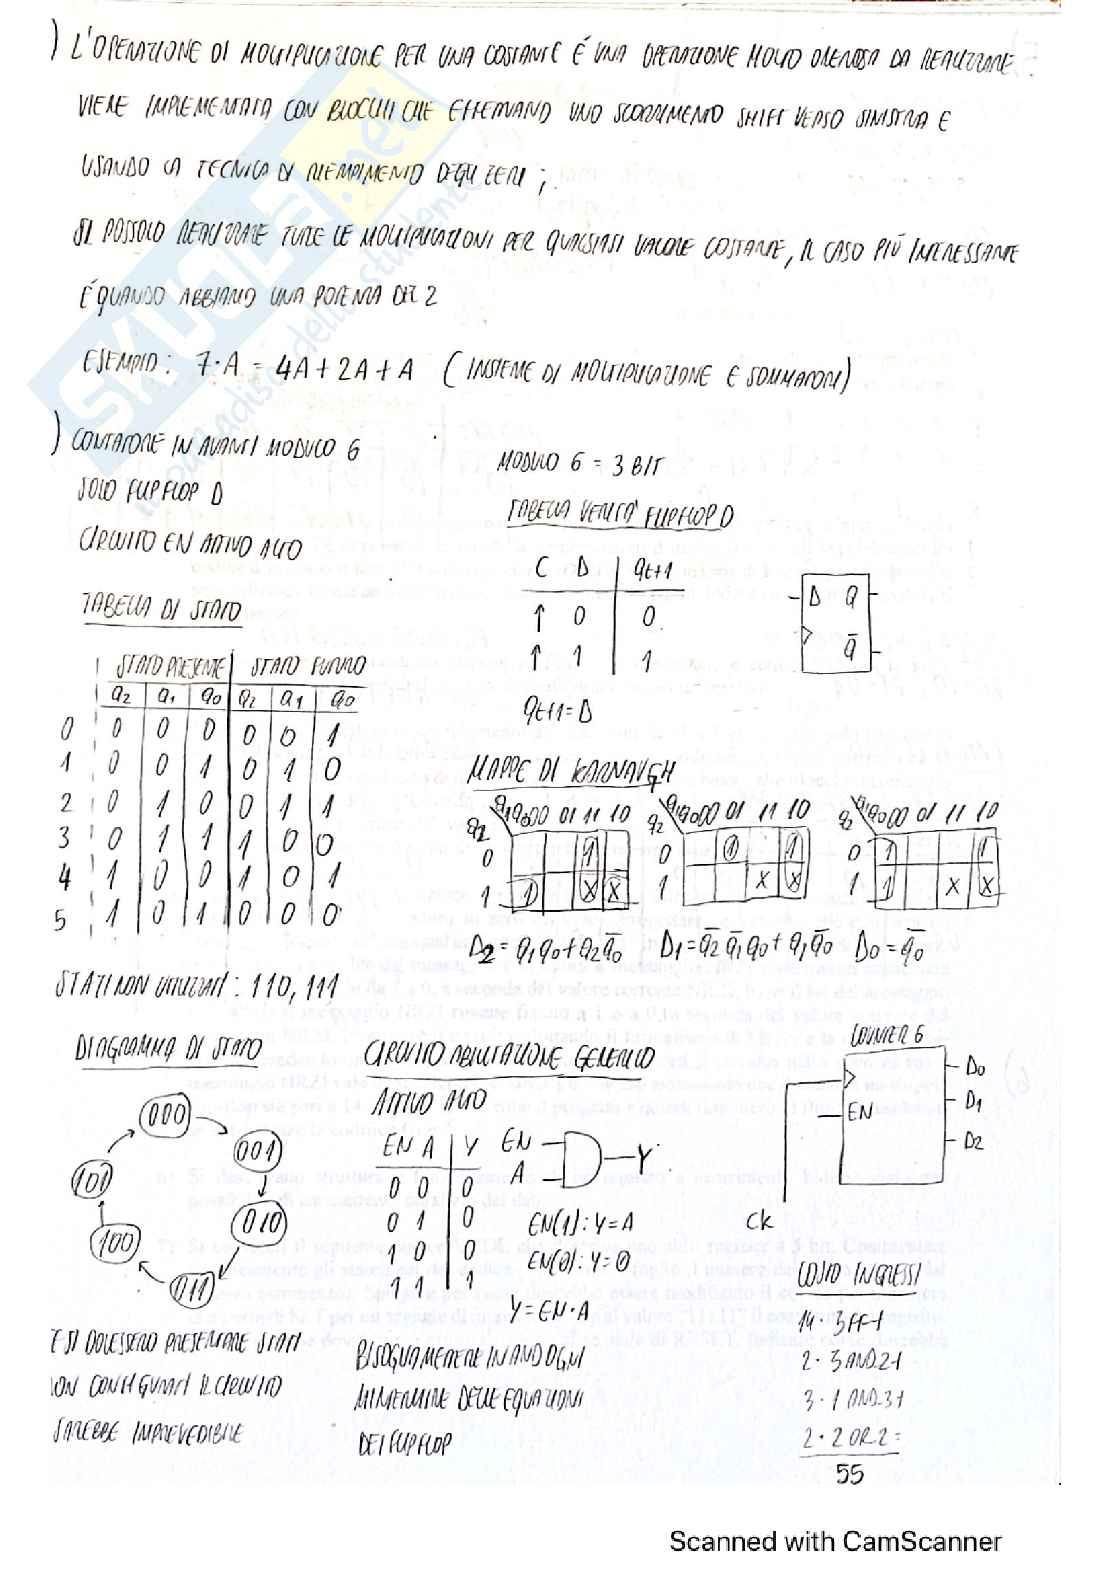 ) L'OPERAZIONE DI MOLTIPLICAZIONE PER UNA COSTANTE É UNA OPERAZIONE MOLTO ONEROSA DA REALIZZARE.
VIENE IMPLEMENTATA CON BLOCCHI CHE EFFETTUANO UNO SCORRIMENTO SHIFT VERSO SINISTRA E
USANDO LA TECNICA DI RIEMPIMENTO DEGLI ZERI ;
SI POSSOLO REALIZZARE TUTTE LE MOLTIPLICAZIONI PER QUALSIASI VALORE COSTANTE, IL CASO PIÙ INTERESSANTE
É QUANDO ABBIAMO UNA POTENZA DEL 2
ESEMPIO: 7·A = 4A + 2A + A ( INSIEME DI MOLTIPLICAZIONE E SOMMATORI)
) CONTATORE IN AVANTI MODULO 6
SOLO FLIPFLOP D
CIRCUITO EN ATTIVO ALTO
MODULO 6 = 3 BIT
TABELLA VERITA' FLIPFLOP D
C D qt+1
↑ 0 0
↑ 1 1
qt+1 = D
D Q
Q̅
TABELLA DI STATO
STATO PRESENTE STATO FUTURO
q2 q1 q0 q2 q1 q0
0 0 0 0 0 0 1
1 0 0 1 0 1 0
2 0 1 0 0 1 1
3 0 1 1 1 0 0
4 1 0 0 1 0 1
5 1 0 1 0 0 0
STATI NON UTILIZZATI : 110, 111
MAPPE DI KARNAUGH
q2 q1q0 00 01 11 10
0 1
1 1 X X
q2 q1q0 00 01 11 10
0 1 1
1 X X
q2 q1q0 00 01 11 10
0 1 1
1 1 X X
D2 = q1q0 + q2q̅0
D1 = q̅2 q̅1 q0 + q1q̅0
D0 = q̅0
DIAGRAMMA DI STATO
000
001
010
011
100
101
E SI DOVESSERO PRESENTARE STATI
NON CONFIGURATI IL CIRCUITO
SAREBBE IMPREVEDIBILE
CIRCUITO ABILITAZIONE GENERICO
ATTIVO ALTO
EN A Y
0 0 0
0 1 0
1 0 0
1 1 1
EN
A
Y
EN(1) : Y = A
EN(0) : Y = 0
Y = EN · A
BISOGNA METTERE IN AND OGNI
MINTERMINE DELLE EQUAZIONI
DEI FLIPFLOP
COUNTER 6
EN
D0
D1
D2
Ck
COSTO INGRESSI
14 · 3 FF+
2 · 3 AND2+
3 · 1 AND3+
2 · 2 OR2 =
55
SKUOLA.net
il paradiso dello studente
Scanned with CamScanner